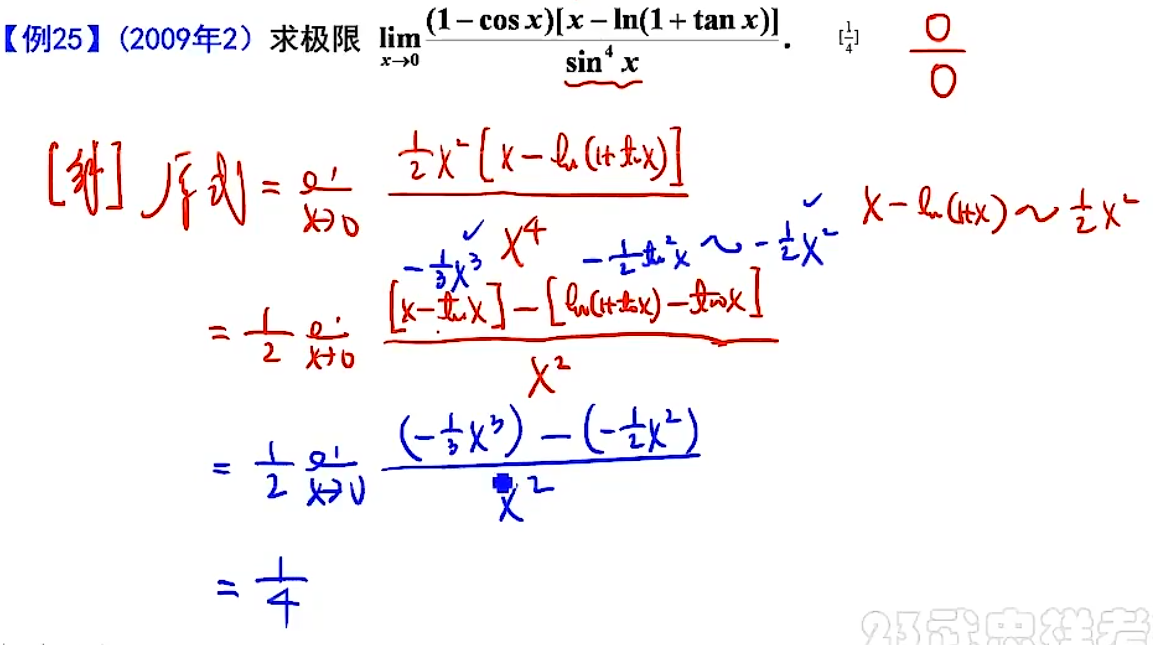 【例25】(2009年2) 求极限 lim_{x→0} (1−cos x)[x−ln(1+tan x)] / sin⁴ x . [1/4] 0/0
[解] 原式 = lim_{x→0} ½x²[x−ln(1+tanx)] / x⁴
x−ln(1+x) ~ ½x²
−⅓x³ ✓ −½tan²x ~ −½x² ✓
= ½ lim_{x→0} [x−tanx]−[ln(1+tanx)−tanx] / x²
= ½ lim_{x→0} (−⅓x³)−(−½x²) / x²
= ¼
23武忠祥考